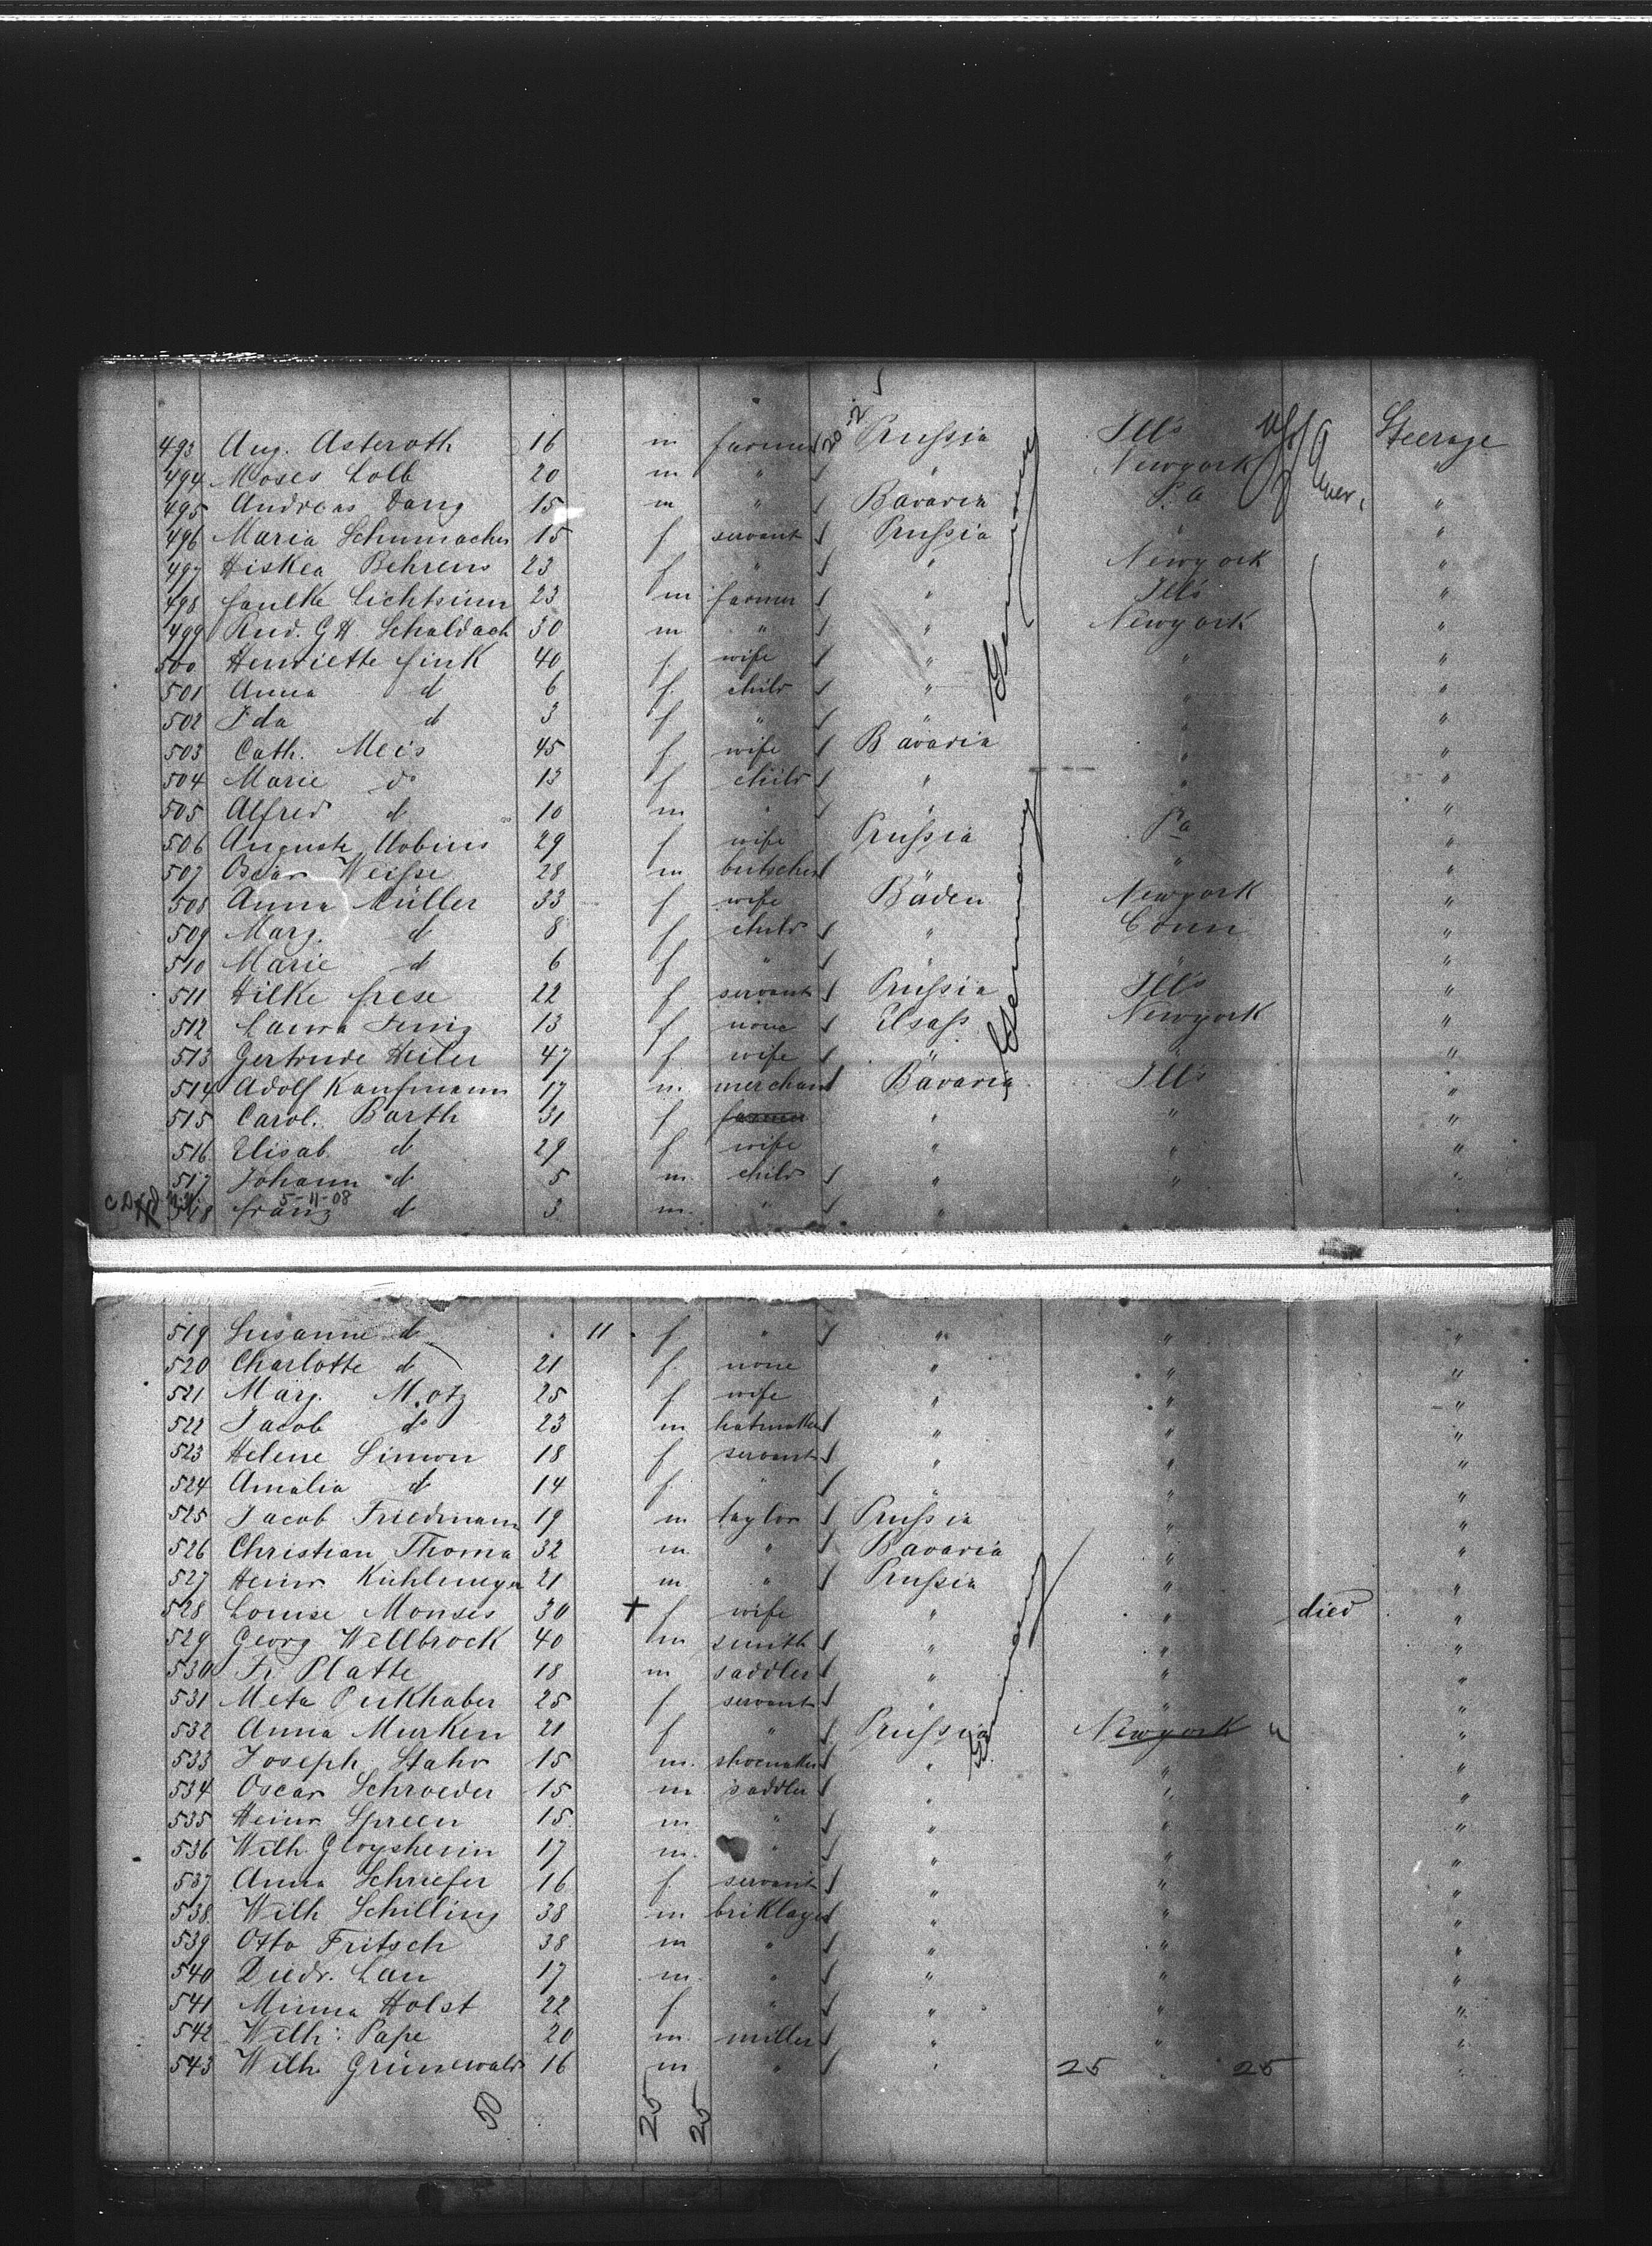 493 Aug. Asteroth 16 m farmer Prussia Ills U S of A Steerage
494 Moses Loeb 20 m " " Newyork "
495 Andreas Dang 15 m " Bavaria P.a "
496 Maria Schumacher 15 f servant Prussia " "
497 Hiskea Behrens 23 f " " Newyork "
498 23 m farmer " Ills "
499 Rud. G H Schaldach 30 m " " Newyork "
500 Henriette Fink 40 f wife " " "
501 Anna d 6 f. child " " "
502 Ida d 3 f " " " "
503 Cath. Meis 45 f wife Bavaria " "
504 Marie do 13 f child " " "
505 Alfred d 10 m " " " "
506 Auguste Mobius 29 f wife Prussia Pa "
507 Oscar Weisse 28 m butscher " " "
508 Anna Müller 33 f wife Baden Newyork "
509 Marg. d 8 f child " Conn "
510 Marie d 6 f " " " "
511 Hilke Frese 22 f servant Prussia Ills "
512 Laura 13 f none Elsass Newyork "
513 Gertrude Heiler 47 f. wife " " "
514 Adolf Kaufmann 17 m. merchant Bavaria Ills "
515 Carol. Barth 31 f farmer " " "
516 Elisab d 29 f wife " " "
517 Johann d 5 m. child " " "
5-11-08
518 Franz d 3 m. " "
Germany
Germany
519 Susanne d 11 f " " " "
520 Charlotte d 21 f. none " " "
521 Marg. Motz 25 f wife " " "
522 Jacob do 23 m hatmaker " " "
523 Helene Simon 18 f servant " " "
524 Amalia d 14 f. " " " "
525 Jacob Friedmann 19 m taylor Prussia " "
526 Christian Thoma 32 m. " Bavaria " "
527 Heinr Kuhlmeyer 21 m. " Prussia " "
528 Louise Monses 30 + f wife " " died "
529 Georg Wellbrock 40 m smith " " "
530 Fr. Platte 18 m saddler " " "
531 Meta Perkhaber 25 f servant " " "
532 Anna Murken 21 f " Prussia Newyork "
533 Joseph Stahr 15 m. shoemaker " " "
534 Oscar Schroeder 15 m saddler " " "
535 Heinr Spreen 15 m " " " "
536 Wilh. Gloystein 17 m. " " " "
537 Anna Schriefer 16 f. servant " " "
538. Wilh Schilling 38 m briklayer " " "
539 Otto Fritsch 38 m " " " "
540 Diedr. Lau 17 m. " " " "
541 Minna Holst 22 f " " " "
542 Wilh. Pape 20 m. miller " " "
543 Wilh. Grünewald 16 m " " 25 25 "
Germany
50 25 25